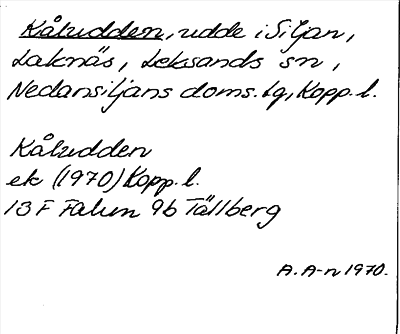 Kåludden, udde i Siljan,
Laknäs, Leksands sn,
Nedansiljans doms. lg, Kopp. l.
Kåludden
ek (1970) Kopp. l.
13 F Falun 9b Tällberg
A. A-n 1970.